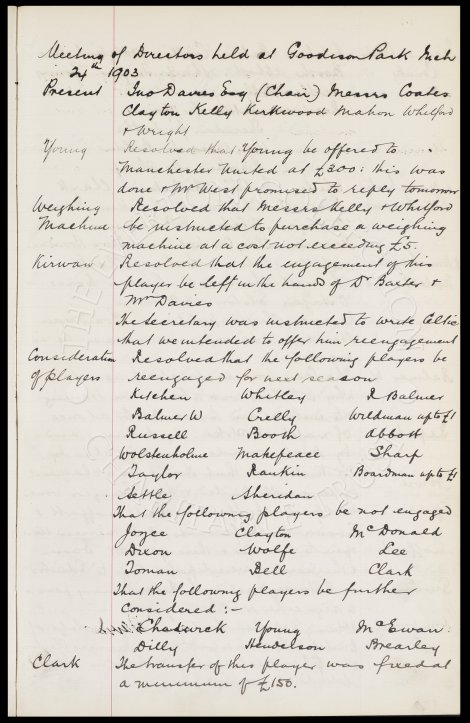 Meeting of Directors held at Goodison Park Mch
24th 1903
Present Jno Davies Esq (Chair) Messrs Coates
Clayton Kelly Kirkwood Mahon Whitford
& Wright
Young Resolved that Young be offered to
Manchester United at £300: this was
done & Mr West promised to reply tomorrow
Weighing Resolved that Messrs Kelly & Whitford
Machine be instructed to purchase a weighing
machine at a cost not exceeding £5.
Kirwan Resolved that the engagement of this
player be left in the hands of Dr Baxter &
Mr Davies
The Secretary was instructed to write Celtic
that we intended to offer him reengagement
Consideration Resolved that the following players be
of players reengaged for next season
Kitchen Whitley R Balmer
Balmer W Crelly Wildman up to £1
Russell Booth Abbott
Wolstenholme Makepeace Sharp
Taylor Rankin Boardman up to £1
Settle Sheridan
That the following players be not engaged
Joyce Clayton McDonald
Dixon Wolfe Lee
Toman Bell Clark
That the following players be further
Considered :-
Chadwick Young McEwan
Dilly Henderson Brearley
Clark The transfer of this player was fixed at
a minimum of £150.